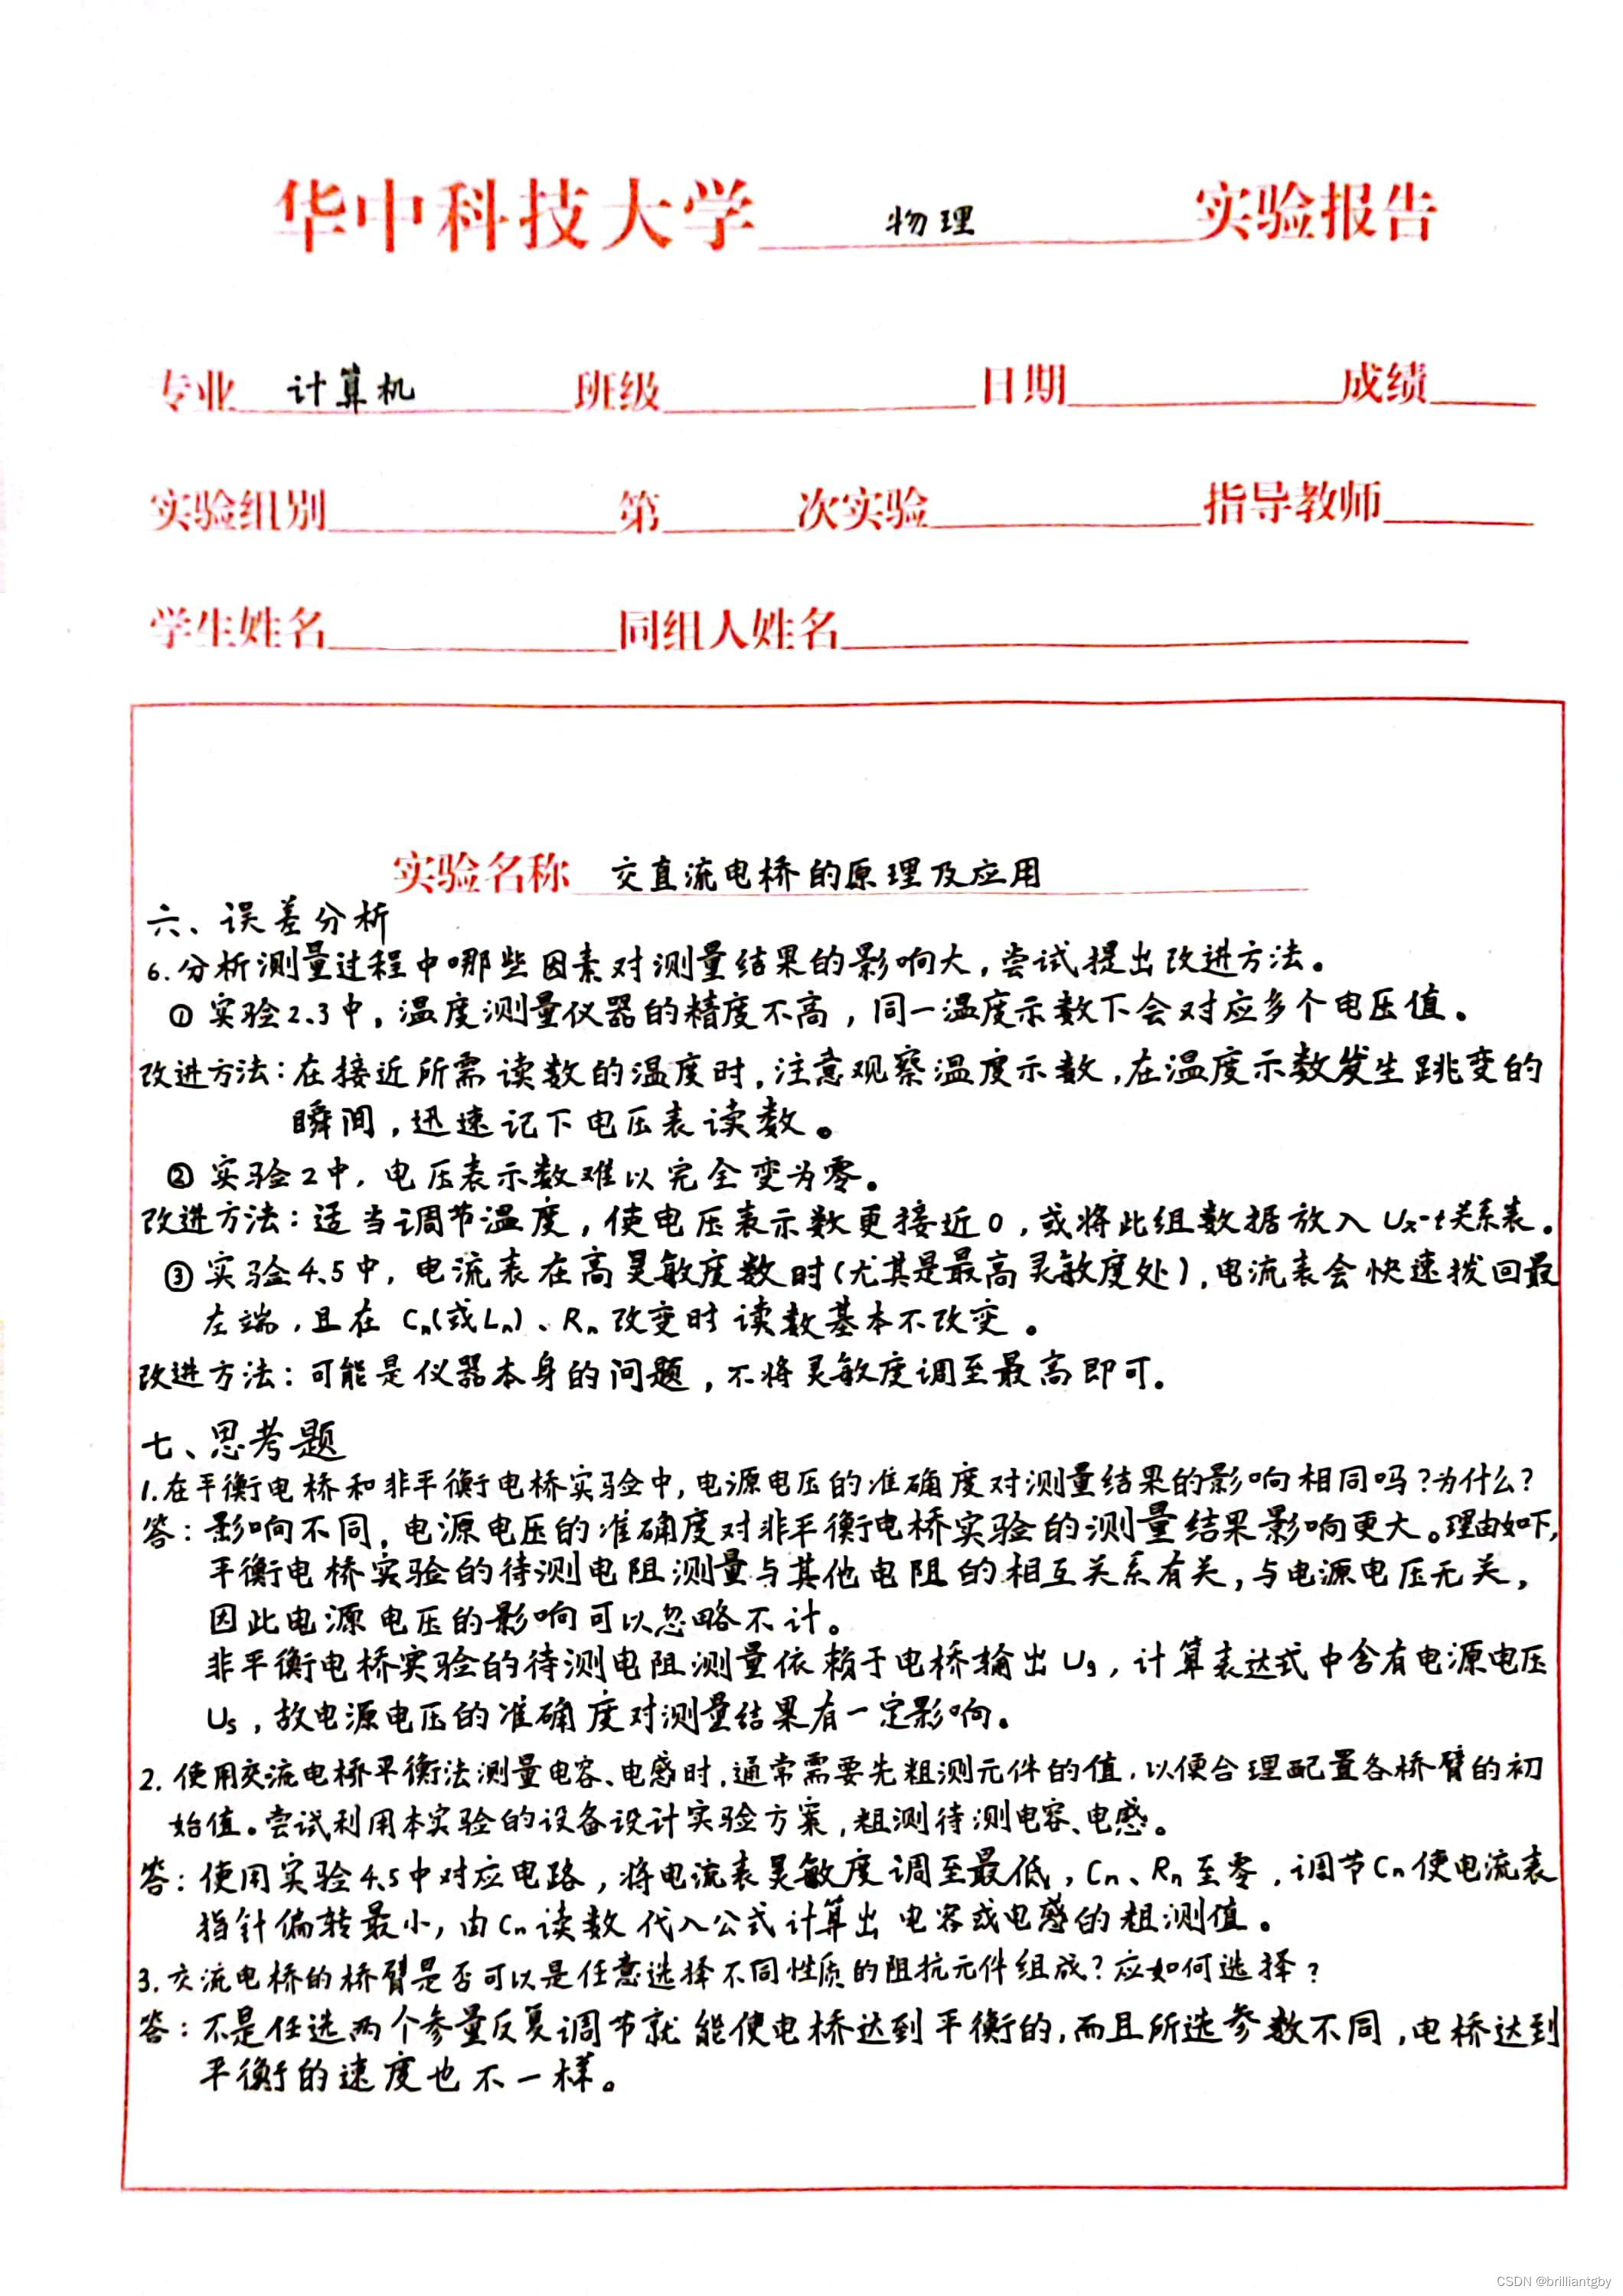 华中科技大学 物理 实验报告
专业 计算机 班级 日期 成绩
实验组别 第 次实验 指导教师
学生姓名 同组人姓名
实验名称 交直流电桥的原理及应用
六、误差分析
6.分析测量过程中哪些因素对测量结果的影响大，尝试提出改进方法。
① 实验2.3中，温度测量仪器的精度不高，同一温度示数下会对应多个电压值。
改进方法：在接近所需读数的温度时，注意观察温度示数，在温度示数发生跳变的
瞬间，迅速记下电压表读数。
② 实验2中，电压表示数难以完全变为零。
改进方法：适当调节温度，使电压表示数更接近0，或将此组数据放入Ux-t关系表。
③ 实验4.5中，电流表在高灵敏度数时(尤其是最高灵敏度处)，电流表会快速拨回最
左端，且在 Cn(或Ln)、Rn 改变时读数基本不改变。
改进方法：可能是仪器本身的问题，不将灵敏度调至最高即可。
七、思考题
1.在平衡电桥和非平衡电桥实验中，电源电压的准确度对测量结果的影响相同吗？为什么？
答：影响不同，电源电压的准确度对非平衡电桥实验的测量结果影响更大。理由如下，
平衡电桥实验的待测电阻测量与其他电阻的相互关系有关，与电源电压无关，
因此电源电压的影响可以忽略不计。
非平衡电桥实验的待测电阻测量依赖于电桥输出Ug，计算表达式中含有电源电压
Us，故电源电压的准确度对测量结果有一定影响。
2. 使用交流电桥平衡法测量电容、电感时，通常需要先粗测元件的值，以便合理配置各桥臂的初
始值。尝试利用本实验的设备设计实验方案，粗测待测电容、电感。
答：使用实验4.5中对应电路，将电流表灵敏度调至最低，Cn、Rn至零，调节Cn使电流表
指针偏转最小，由Cn读数代入公式计算出电容或电感的粗测值。
3.交流电桥的桥臂是否可以是任意选择不同性质的阻抗元件组成？应如何选择？
答：不是任选两个参量反复调节就能使电桥达到平衡的，而且所选参数不同，电桥达到
平衡的速度也不一样。
CSDN @brilliantgby